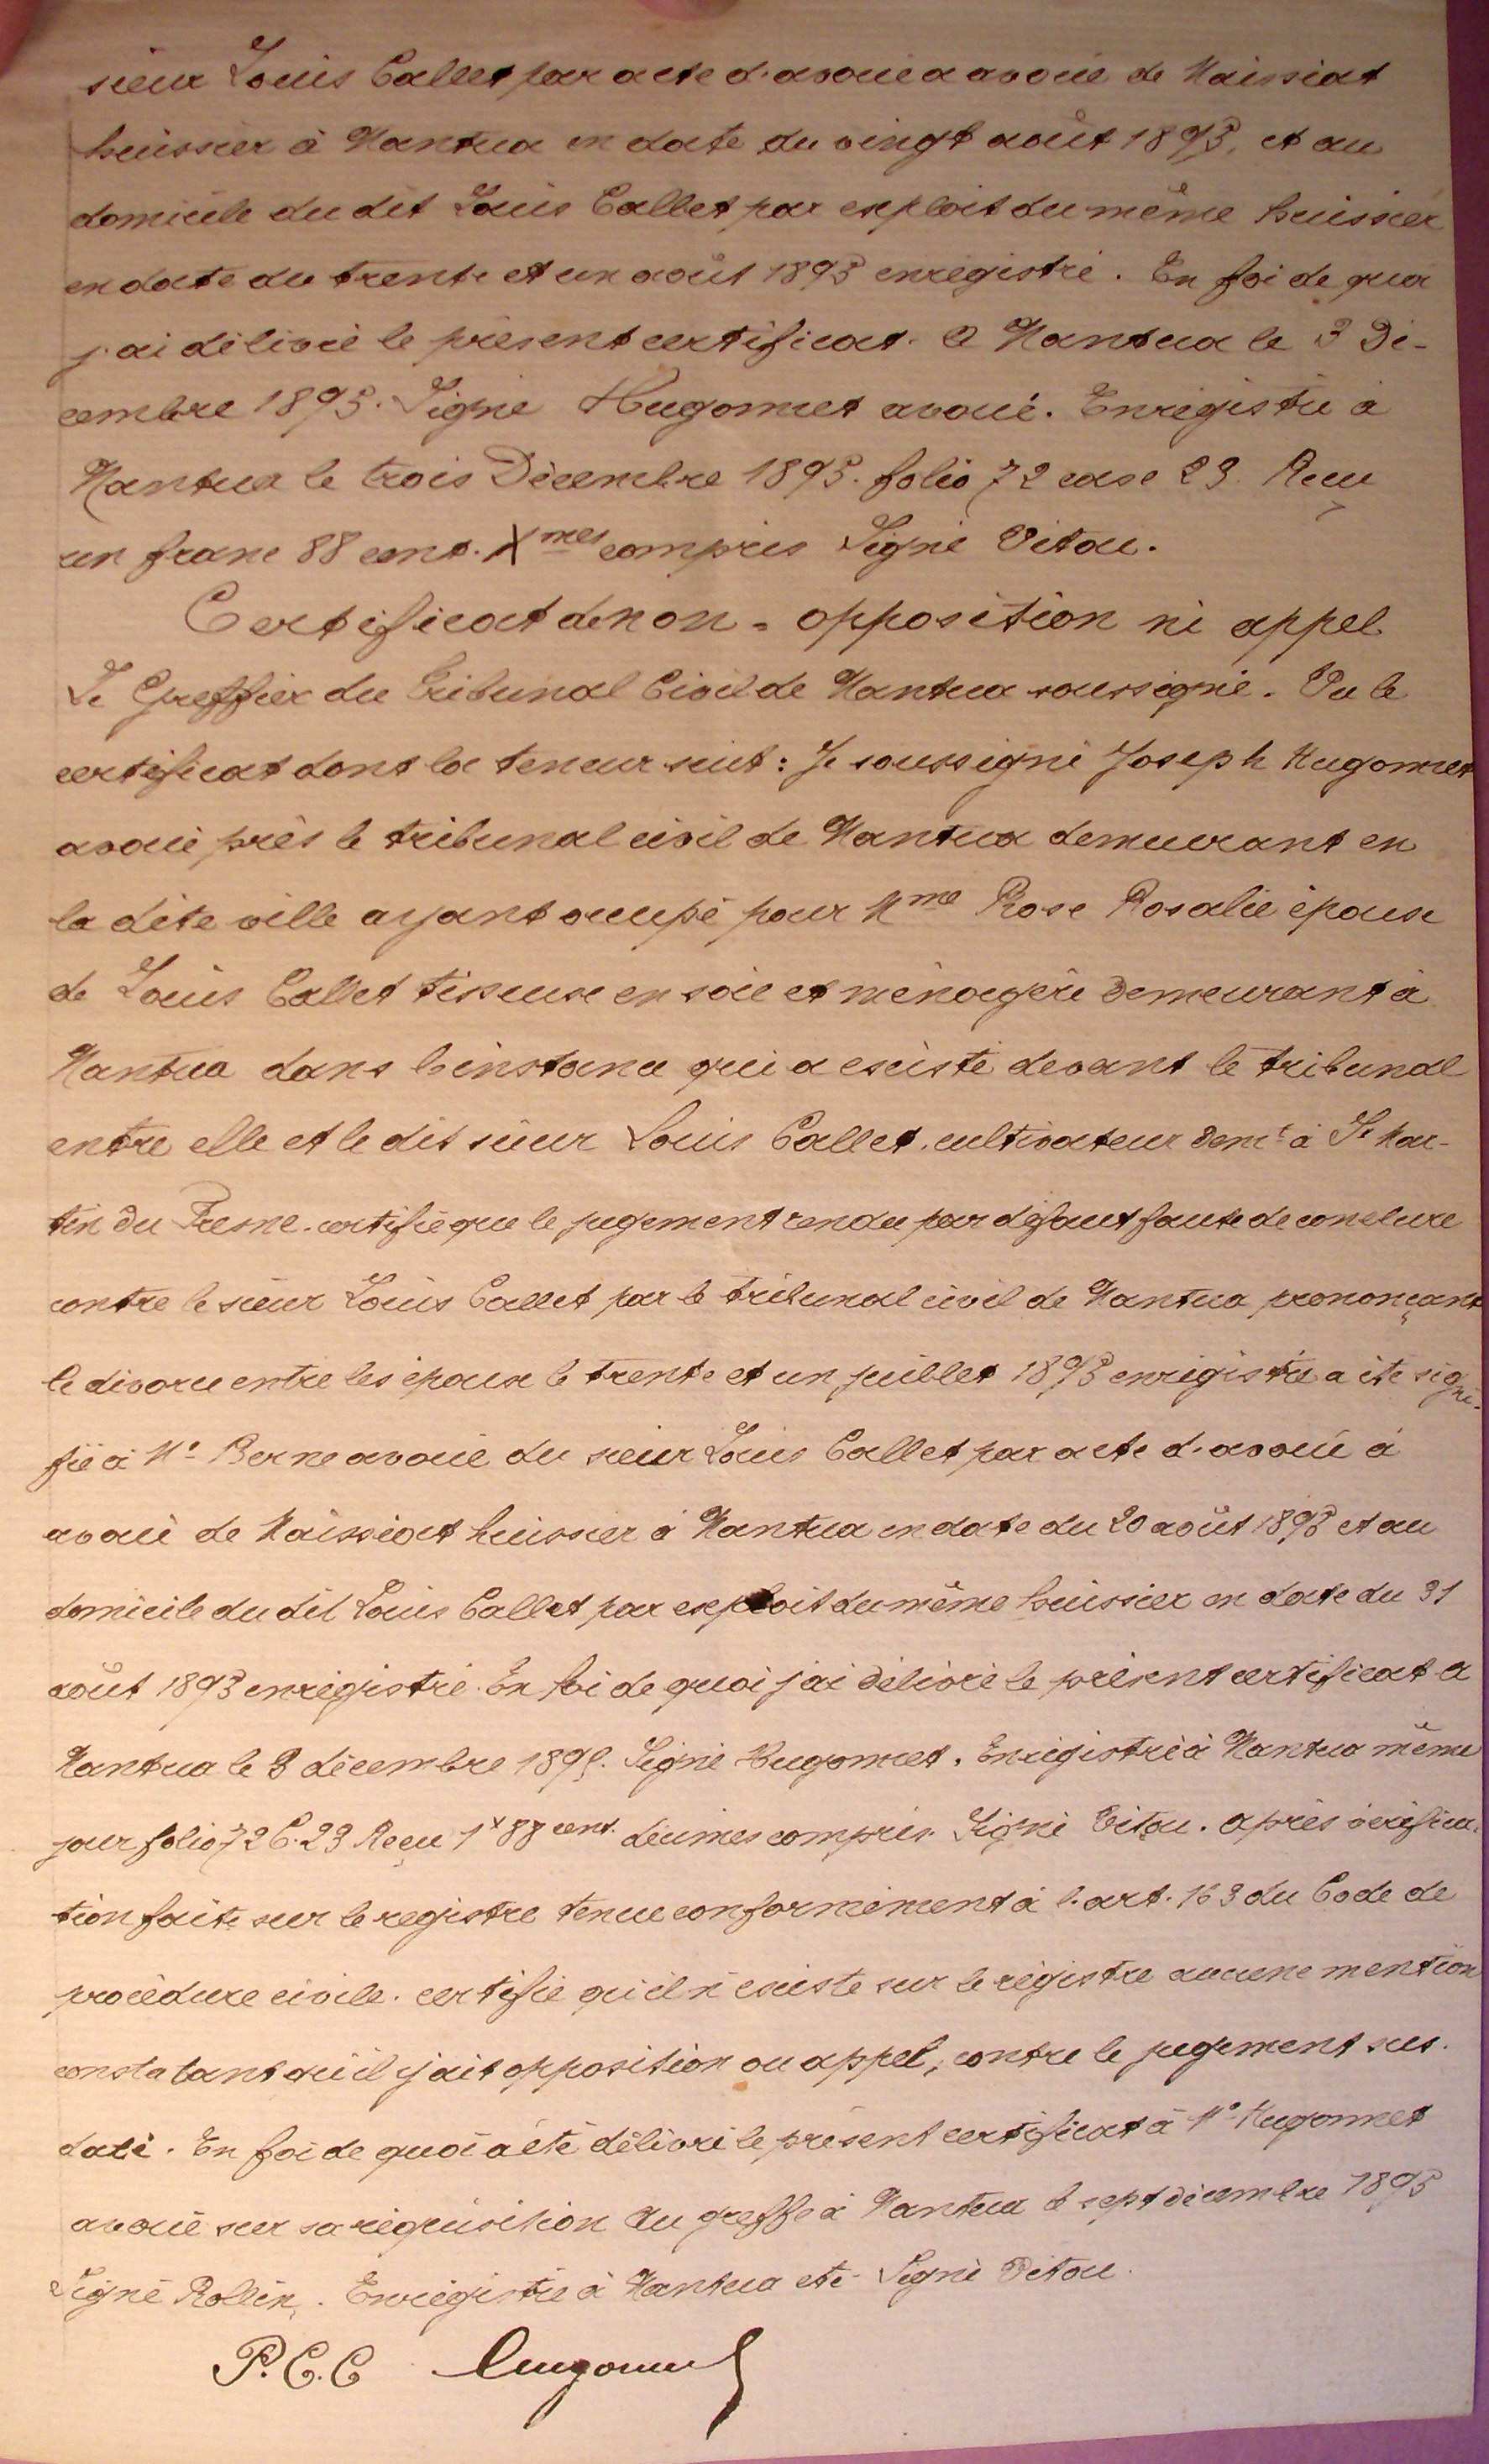 sieur Louis Callet par acte d'avoué a avoué de Maissiat
huissier à Nantua en date du vingt août 1895, et au
domicile du dit Louis Callet par exploit du même huissier
en date du trente et un août 1895 enregistré. En foi de quoi
j'ai délivré le présent certificat. A Nantua le 3 Dé-
cembre 1895. Signé Hugonnet avoué. Enregistré à
Nantua le trois Décembre 1895. folio 72 case 23. Reçu
un franc 88 cent. Xmes compris Signé Vitou.
Certificat de non-opposition ni appel
Le Greffier du Tribunal Civil de Nantua soussigné. Vu le
certificat dont la teneur suit : Je soussigné Joseph Hugonnet
avoué près le tribunal civil de Nantua demeurant en
la dite ville ayant occupé pour Mme Rose Rosalie épouse
de Louis Callet tisseuse en soie et ménagère demeurant à
Nantua dans l'instance qui a existé devant le tribunal
entre elle et le dit sieur Louis Callet, cultivateur demt à St Mar-
tin du Fresne. certifie que le jugement rendu par défaut faute de conclure
contre le sieur Louis Callet par le tribunal civil de Nantua prononçant
le divorce entre les époux le trente et un juillet 1895 enregistré a été signi-
fié à Me Berne avoué du sieur Louis Callet par acte d'avoué à
avoué de Maissiat huissier à Nantua en date du 20 août 1895 et au
domicile du dit Louis Callet par exploit du même huissier en date du 31
août 1895 enregistré. En foi de quoi j'ai délivré le présent certificat a
Nantua le 3 décembre 1895. Signé Hugonnet. Enregistré à Nantua même
jour folio 72 C. 23 Reçu 1f 88 cent. décimes compris. Signé Vitou. Après vérifica-
tion faite sur le registre tenue conformément à l'art. 163 du Code de
procédure civile. certifie qu'il n'existe sur le registre aucune mention
constatant qu'il y ait opposition ou appel, contre le jugement sus-
daté. En foi de quoi a été délivré le présent certificat à Me Hugonnet
avoué sur sa réquisition Au greffe à Nantua le sept décembre 1895
Signé Rollin. Enregistré à Nantua etc. Signé Vitou.
P. C. C Hugonnet